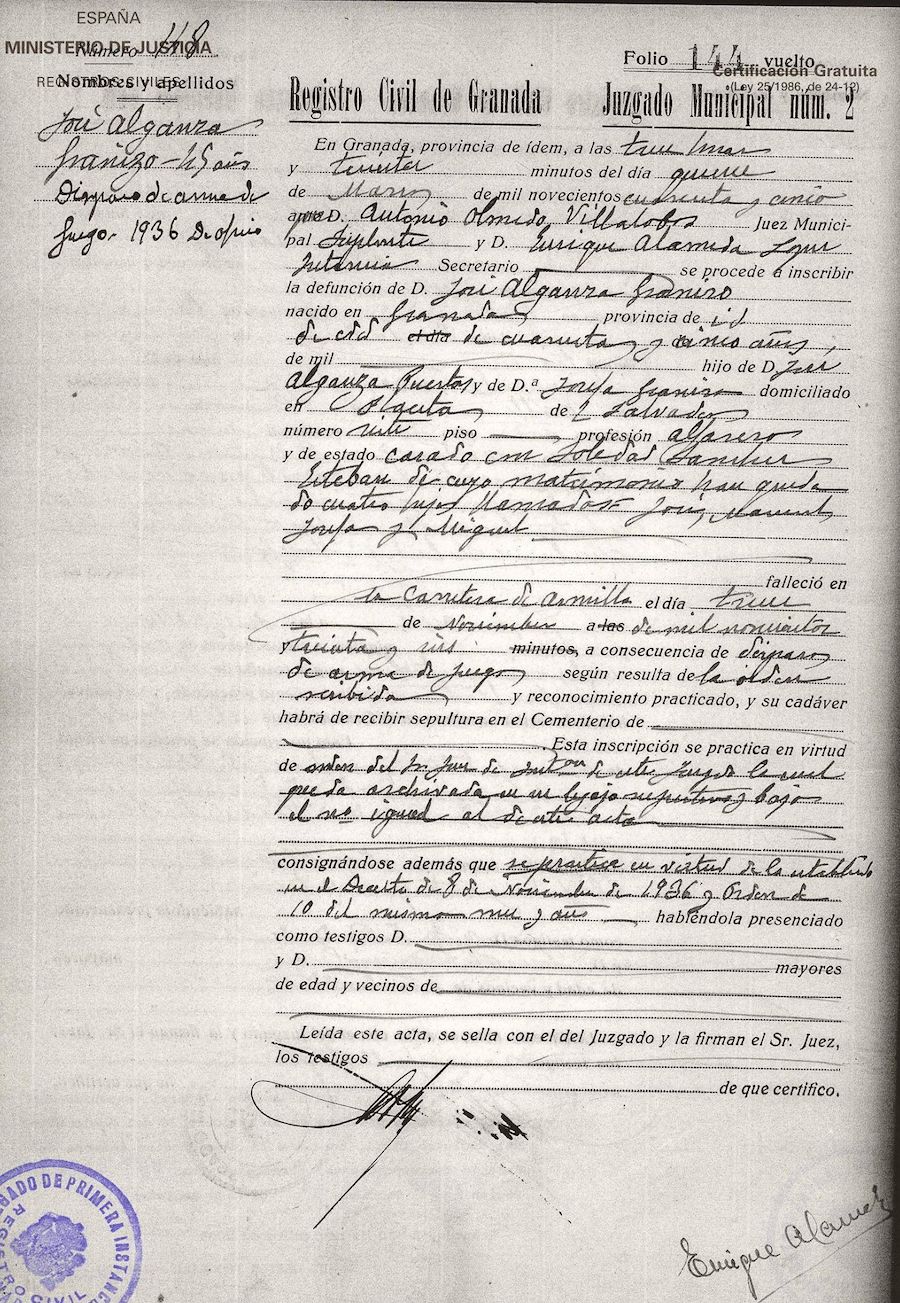 ESPAÑA
MINISTERIO DE JUSTICIA
REGISTROS CIVILES
Certificación Gratuita
(Ley 25/1986, de 24-12)
Número 118
Nombres y apellidos
José Alganza
Grañizo - 45 años
Disparo de arma de
fuego - 1936 De oficio
Folio 144 vuelto
Registro Civil de Granada
Juzgado Municipal núm. 2
En Granada, provincia de ídem, a las trece horas
y treinta minutos del día quince
de Marzo de mil novecientos cuarenta y cinco
ante D. Antonio Olmedo Villalobos Juez Munici-
pal Suplente y D. Enrique Alameda Lopez
Secretario se procede a inscribir
la defunción de D. José Alganza Granizo
nacido en Granada provincia de id
de edad el día de cuarenta y cinco años,
de mil hijo de D. José
Alganza Puertas y de D.ª Josefa Granizo domiciliado
en Placeta del Salvador
número siete piso profesión alfarero
y de estado casado con Soledad Sanchez
Esteban de cuyo matrimonio han queda
do cuatro hijos llamados José, Manuel,
Josefa y Miguel
falleció en
la Carretera de Armilla el día trece
de Noviembre a las de mil novecientos
y treinta y seis minutos, a consecuencia de disparo
de arma de fuego según resulta de la orden
recibida y reconocimiento practicado, y su cadáver
habrá de recibir sepultura en el Cementerio de
Esta inscripción se practica en virtud
de orden del Sr. Juez de Inston de este Juzgado la cual
queda archivada en su legajo respectivo y bajo
el nº igual al de este acta
consignándose además que se practica en virtud de lo establecido
en el Decreto de 8 de Noviembre de 1936 y Orden de
10 del mismo mes y año habiéndola presenciado
como testigos D.
y D. mayores
de edad y vecinos de
Leída este acta, se sella con el del Juzgado y la firman el Sr. Juez,
los testigos
de que certifico.
Enrique Alameda
JUZGADO DE PRIMERA INSTANC
REGISTRO CIVIL